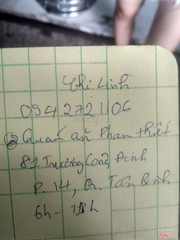 Chi Linh
0942721106
Quán ăn Phan Thiết
81 Trương Công Định
P. 14, Q. Tân Bình
6h - 11h